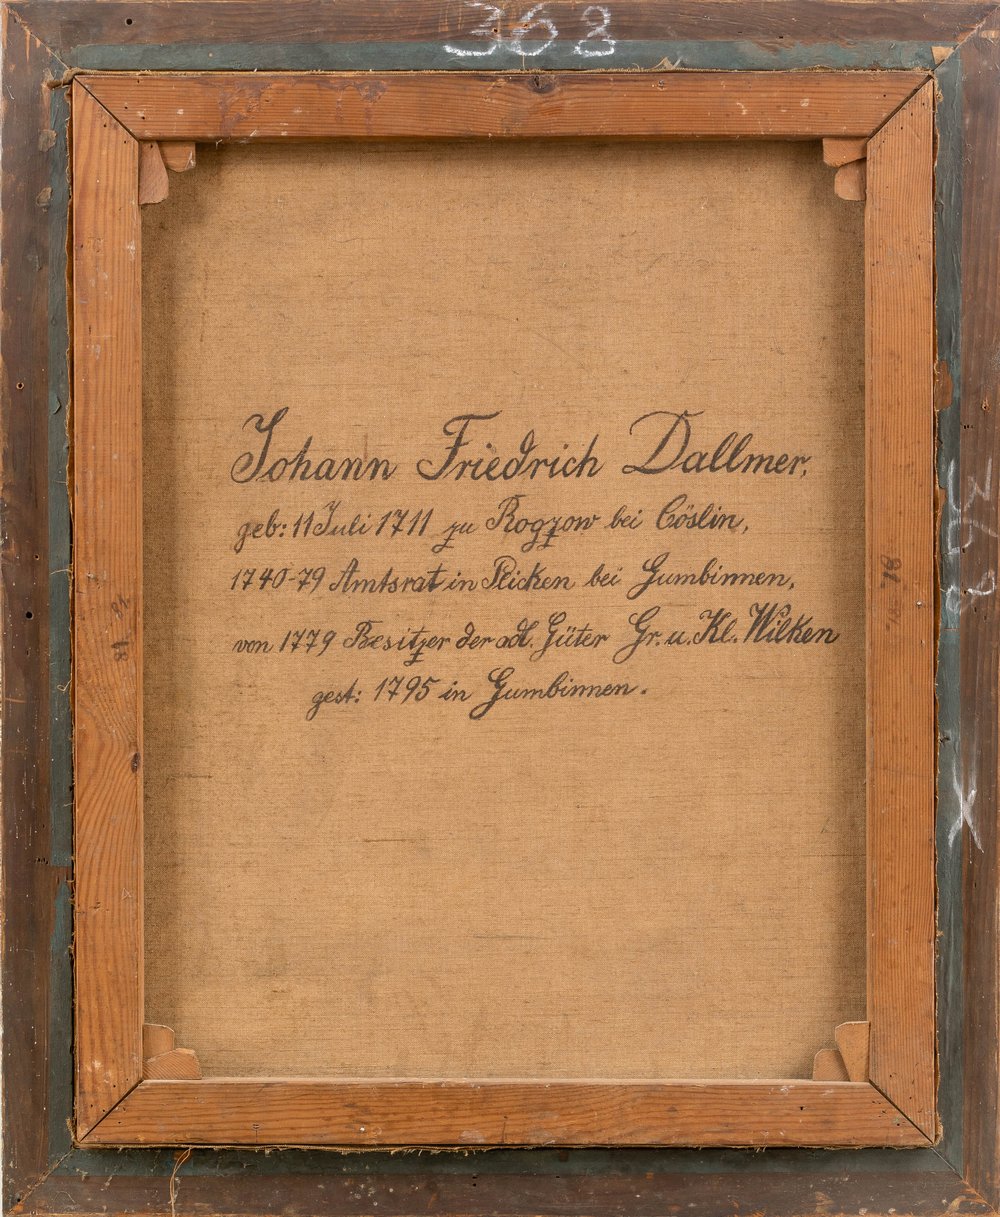 368
Johann Friedrich Dallmer,
geb: 11 Juli 1711 zu Rogzow bei Cöslin,
1740-79 Amtsrat in Plicken bei Gumbinnen,
von 1779 Besitzer der adl. Güter Gr. u. Kl. Wilken
gest: 1795 in Gumbinnen.
368
X